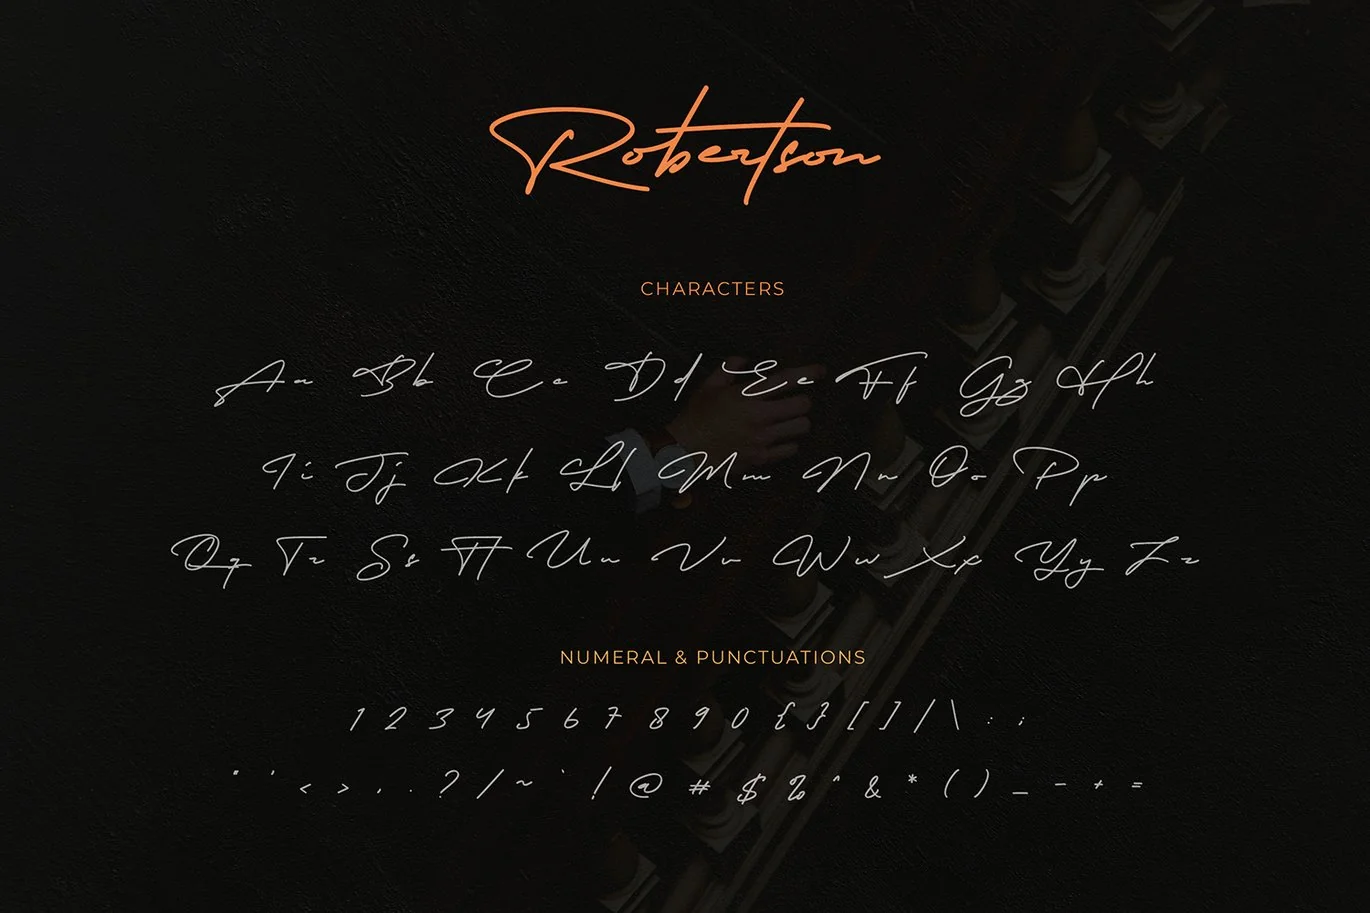 Robertson
CHARACTERS
Aa Bb Cc Dd Ee Ff Gg Hh
Ii Jj Kk Ll Mm Nn Oo Pp
Qq Rr Ss Tt Uu Vv Ww Xx Yy Zz
NUMERAL & PUNCTUATIONS
1 2 3 4 5 6 7 8 9 0 { } [ ] / \ : ;
" ' < > , . ? / ~ ` ! @ # $ % ^ & * ( ) _ - + =